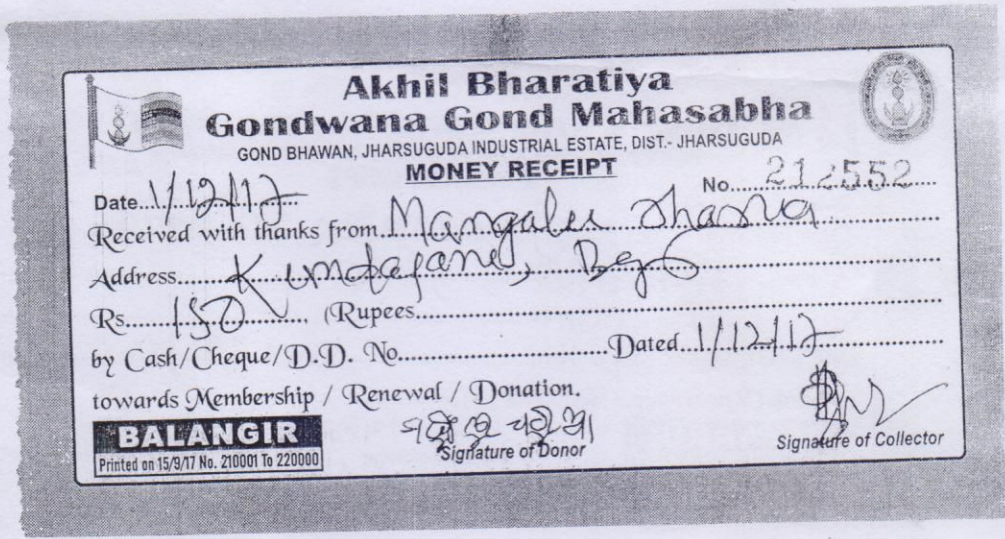 Akhil Bharatiya
Gondwana Gond Mahasabha
GOND BHAWAN, JHARSUGUDA INDUSTRIAL ESTATE, DIST.- JHARSUGUDA
MONEY RECEIPT
Date...1/12/17......... No......212552......
Received with thanks from...Mangalu.........
Address.........
Rs......150......... (Rupees.........
by Cash/Cheque/D.D. No.........Dated...1/12/17.........
towards Membership / Renewal / Donation.
BALANGIR
Printed on 15/9/17 No. 210001 To 220000
Signature of Donor
Signature of Collector